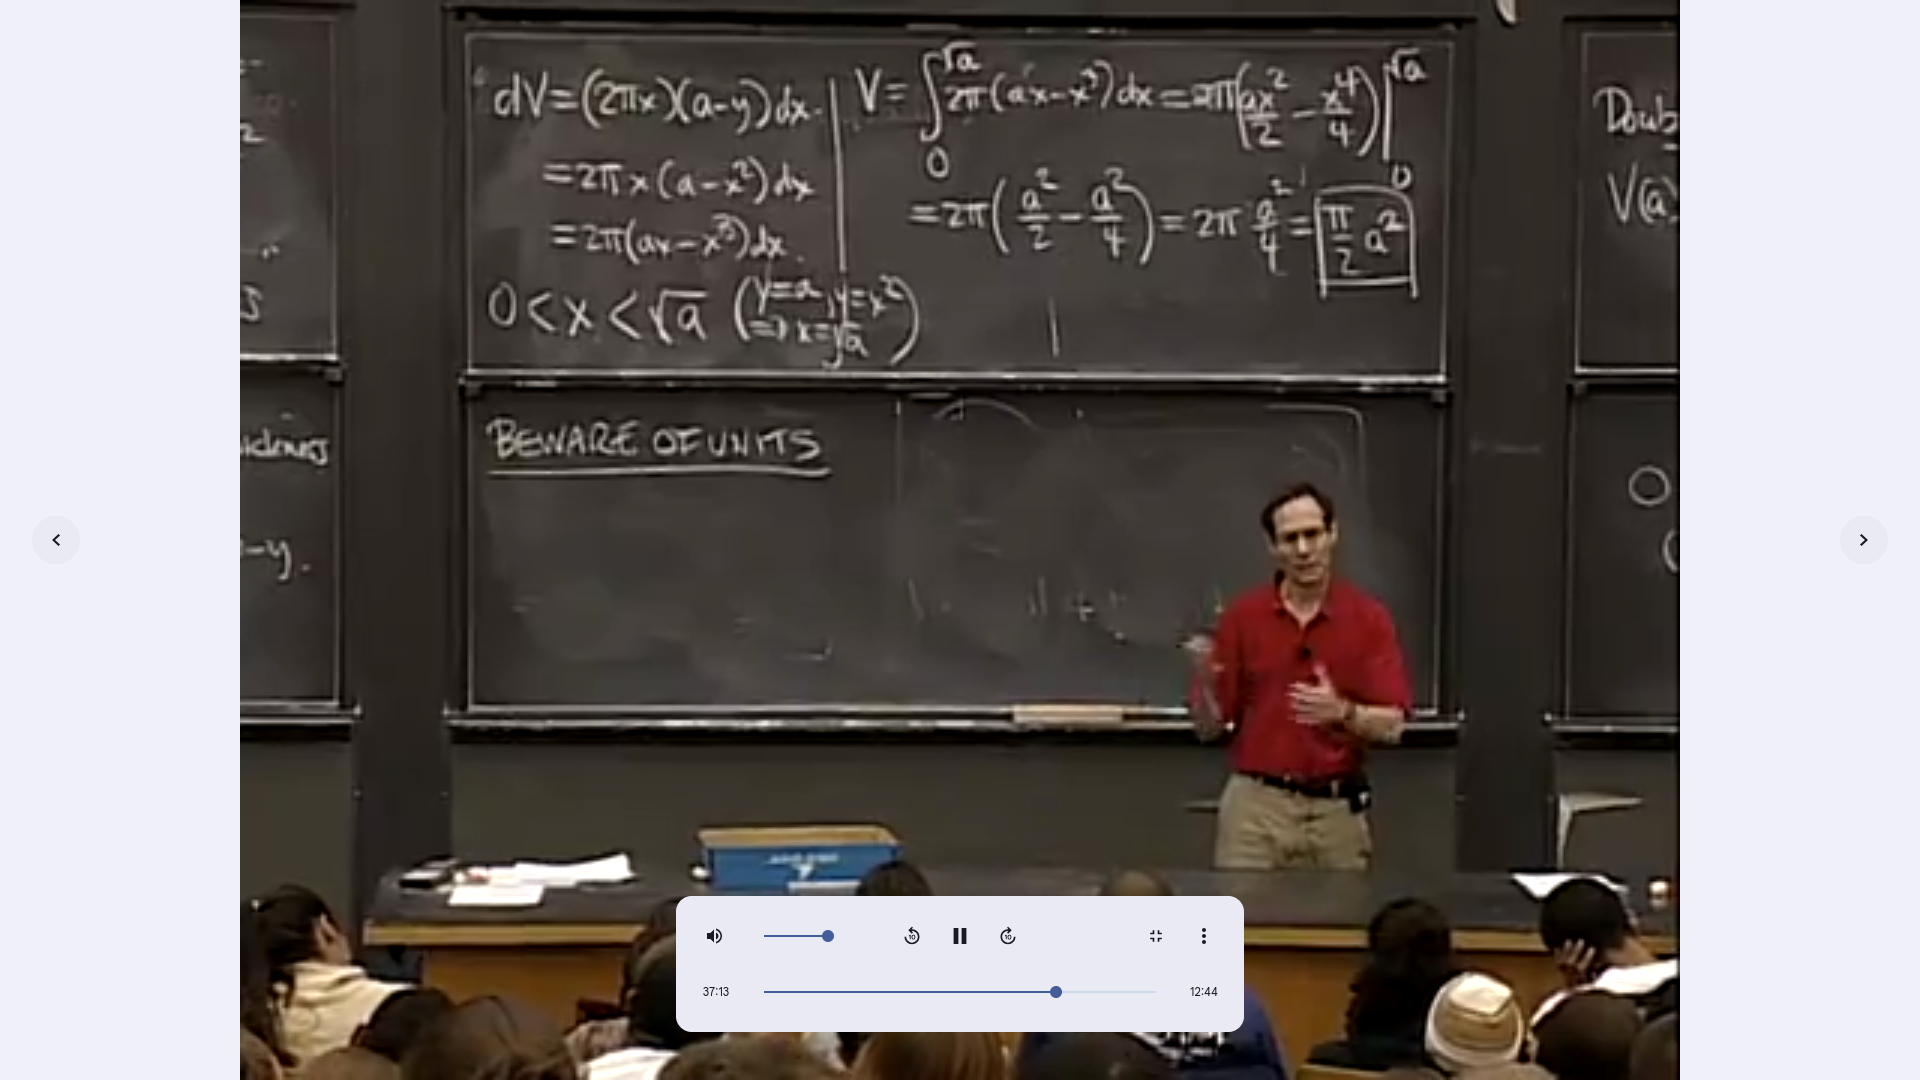 dV=(2πx)(a-y)dx.
=2πx(a-x²)dx
=2π(ax-x³)dx.
0<x<√a (y=a, y=x²
⇒ x=√a)
V=∫₀^√a 2π(ax-x³)dx=2π(ax²/2 - x⁴/4)|₀^√a
=2π(a²/2 - a²/4)=2π a²/4=π/2 a²
BEWARE OF UNITS
-y.
V(a)
37:13
12:44